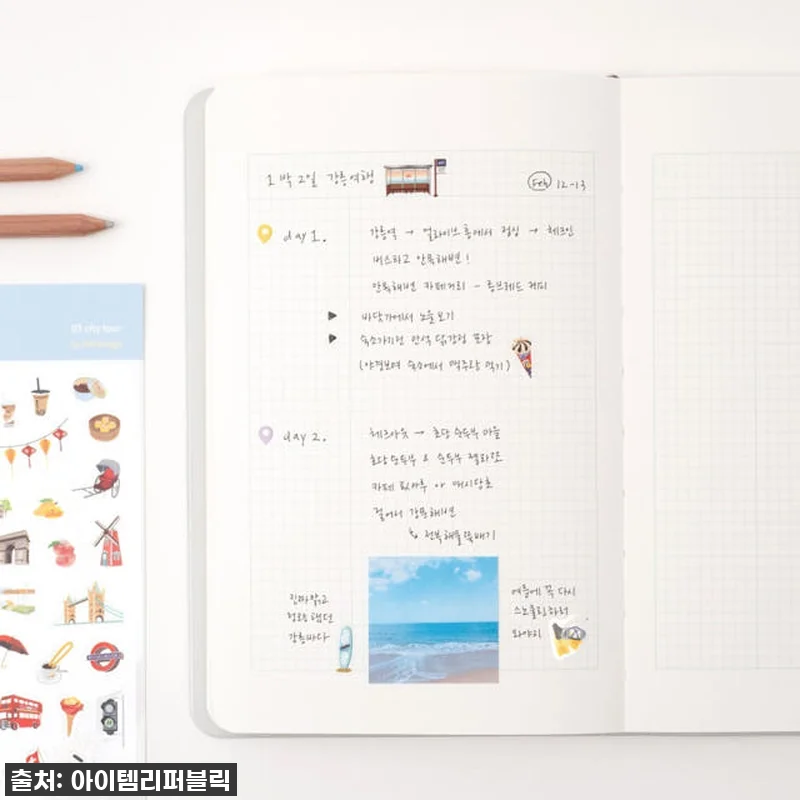 1박 2일 강릉여행
Feb 12-13
day 1.
강릉역 → 얼라이브홍에서 점심 → 체크인
버스타고 안목해변!
안목해변 카페거리 - 롱브레드 커피
▶ 바닷가에서 노을보기
▶ 숙소가기전 만석 닭강정 포장
(야경보며 숙소에서 맥주랑 먹기)
day 2.
체크아웃 → 초당 순두부 마을
초당순두부 & 순두부 젤라또
카페
걸어서 강문해변
↳ 전복해물뚝배기
진짜 맑고
강릉바다
여름에 꼭 다시
스노쿨링하러
와야지
03 city tour
출처: 아이템리퍼블릭